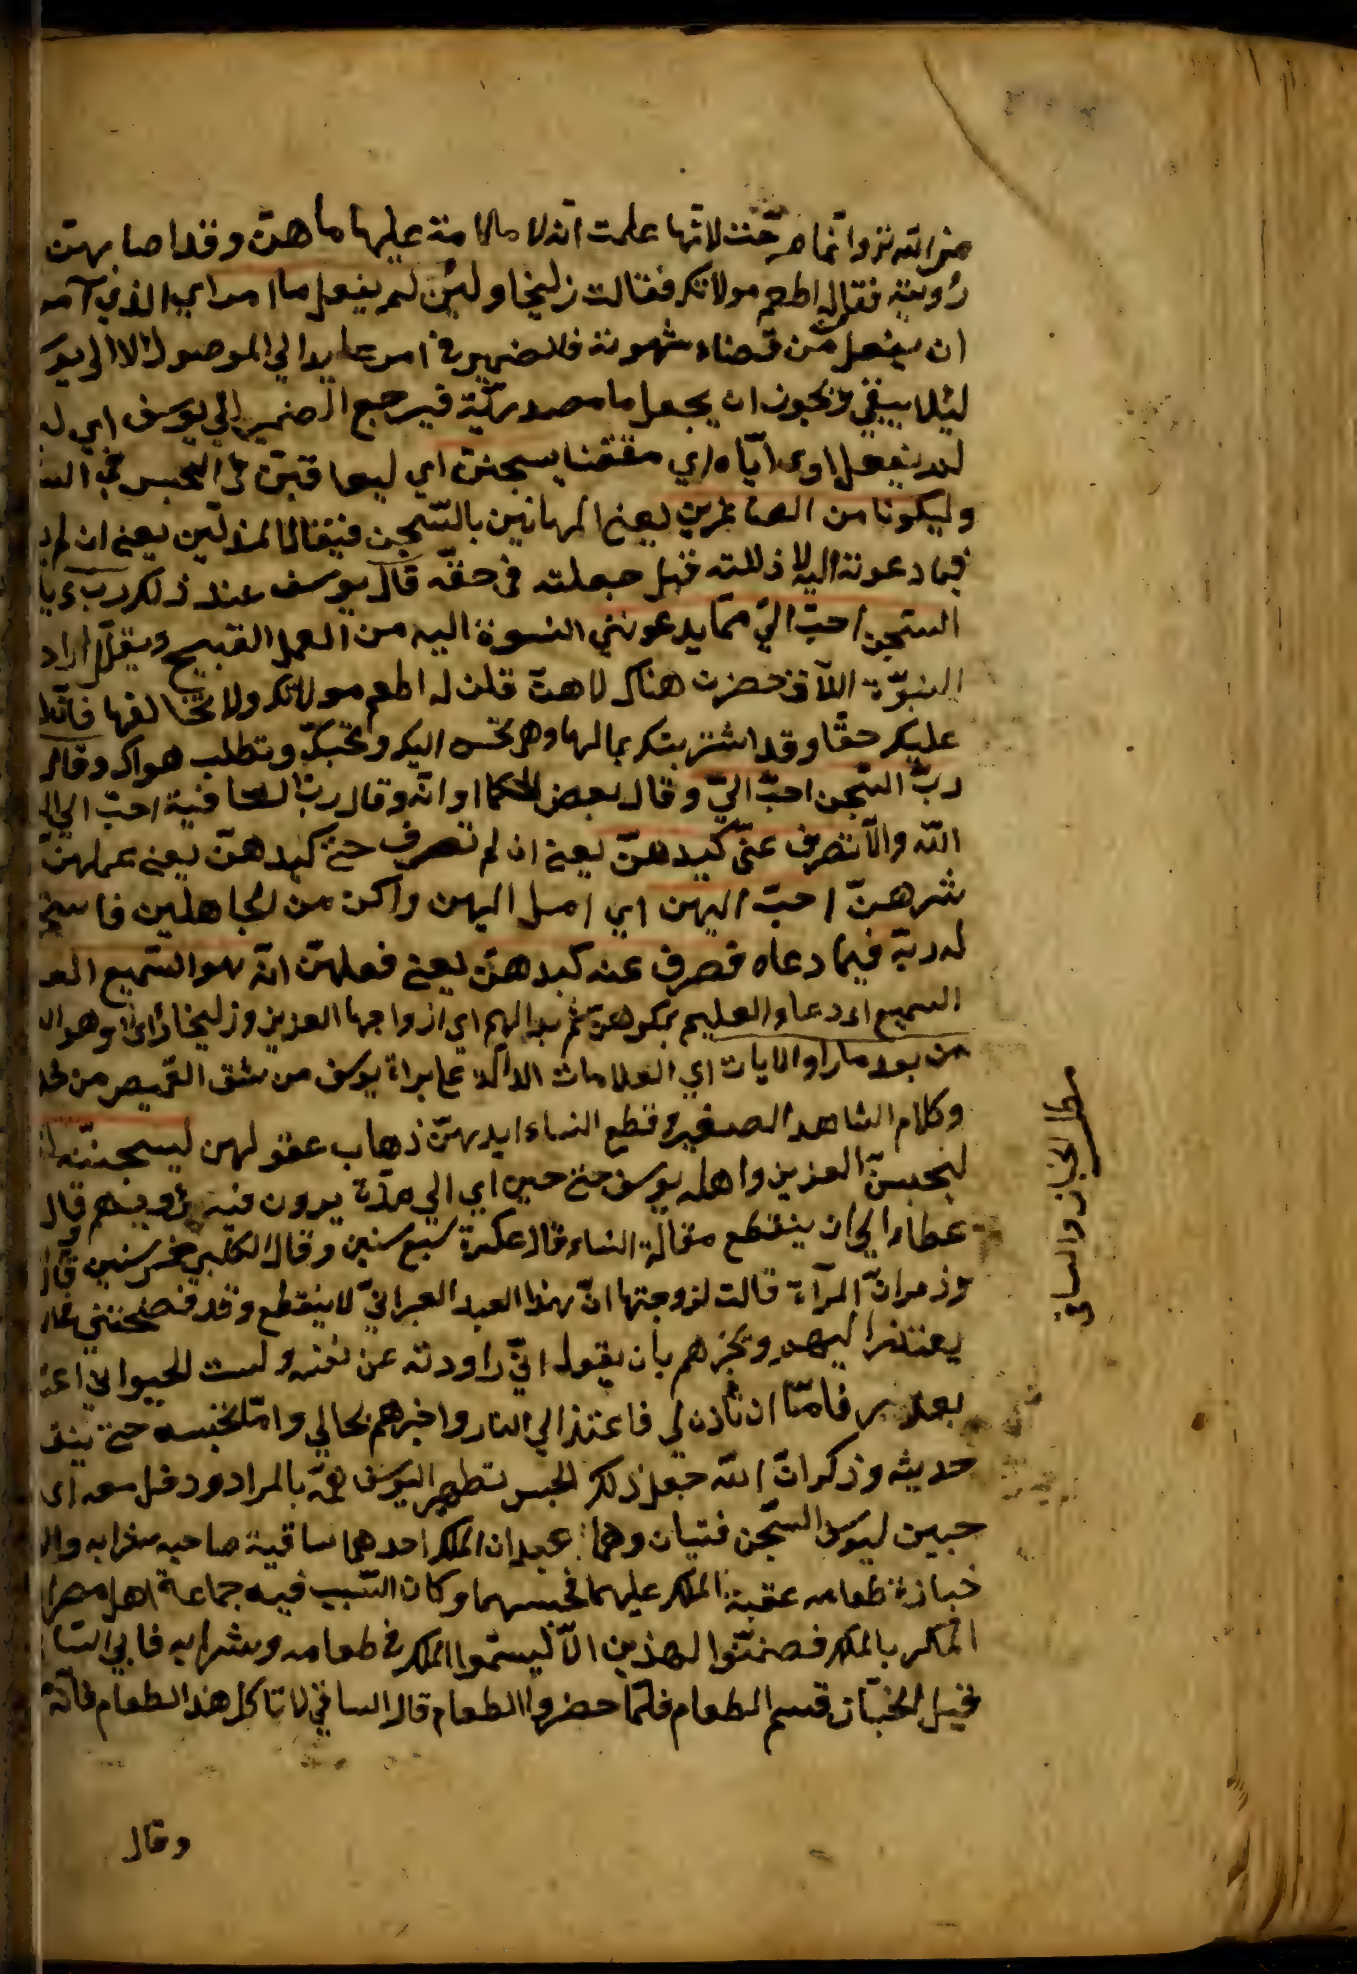 منه انه نزوا نما صرّحت لانّها علمت انه لا ملامة عليها ما هنّ وقد اصابهنّ
رؤيته فقال له اطع مولاتك فقالت زليخا ولئن لم يفعل ما امر اي الذي آمر
ان يفعل من قضاء شهوته فالضمير في امر عايد الي الموصول لا الي يو
ليلا يبقي ويجوز ان يجعل ما مصدريّة فيرجع الضمير الي يوسف اي ل
لم يفعل اوي ايّاه اي مقتضا يسجننّ اي ليعاقبنّ في الحبس في الس
وليكونا من الصاغرين يعني المهانين بالسّجن فيقال المذلّين يعني ان لم
فيما دعوته اليه لاذللته قال يوسف عند ذلك ربّ يا
السّجن احبّ اليّ ممّا يدعونني النسوة اليه من العمل القبيح ويقال اراد
النسوة اللاتي حضرت هناك لانهنّ قلن له اطع مولاتك ولا تخالفها فانّ لها
عليك حقّا وقد اشتريتك بمالها وهي تحسن اليك وتحبّك وتطلب هواك وقال
ربّ السّجن احبّ اليّ وقال بعض الحكماء لو انّه قال ربّ العافية احبّ اليّ
اللّه والّا تصرف عنّي كيدهنّ يعني ان لم تصرف عنّي كيدهنّ يعني عملهنّ
شرهنّ احبّ اليهن اي امل اليهن واكن من الجاهلين فاستج
له ربّه فيما دعاه فصرف عنه كيدهنّ يعني فعلهنّ انّه هو السّميع الع
السميع الدعاء والعليم بمكرهنّ ثم بدا لهم اي ازواجها العزيز وزليخا
من بعد ما راوا الايات اي العلامات الدالّة علي براة يوسف من شق القميص من
وكلام الشاهد الصغير وقطع النساء ايديهنّ ذهاب عقولهن ليسجننّه
لنحبسنّ العزيز واهله يوسف حتي حين اي الي مدّة يرون فيه رؤيتهم قال
عطاء الي ان ينقطع مقالة النساء قال عكرمة سبع سنين وقال الكلبي خمس سنين قال
وذمر انّ المرآة قالت لزوجها انّ هذا العبد العبرانيّ لا ينقطع وقد فضحتني
يعتذر اليهم ويخبرهم بان يقول انّي راودته عن نفسه ولست
فامّا ان تاذن لي فاعتذر الي الناس واخبرهم بحالي وامّا تحبسه حتي ينق
حديثه وذكر انّ اللّه جعل ذلك الحبس تطهير اليوسف همّه بالمراد ودخل معه اي
حبس ليوسف السّجن فتيان وهما عبدان الملك احدهما ساقية صاحبه شرابه وال
خبازه طعامه الملك عليهما فحبسهما وكان السّبب فيه جماعة اهل مصر
المكر بالملك فضمنّوا لهذين الّا ليسمّوا الملك في طعامه وشرابه فابي السّا
فقبل الخبّاز فسم الطعام فلمّا حضروا الطعام قال الساقي لا تاكل هذا الطعام فانّه
وقال
مطلب الخباز والساقي